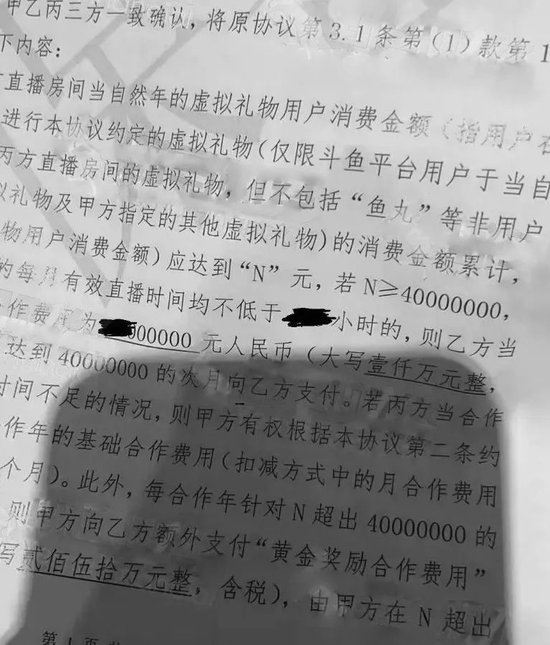 甲乙丙三方一致确认，将原协议第3.1条第（1）款第1
下内容：
直播房间当自然年的虚拟礼物用户消费金额（指用户在
进行本协议约定的虚拟礼物（仅限斗鱼平台用户于当自
丙方直播房间的虚拟礼物，但不包括“鱼丸”等非用户
礼物及甲方指定的其他虚拟礼物）的消费金额累计，
物用户消费金额）应达到“N”元，若N≥40000000，
的每月有效直播时间均不低于 小时的，则乙方当
作费用为 00000 元人民币（大写壹仟万元整，
达到40000000的次月向乙方支付。若丙方当合作
时间不足的情况，则甲方有权根据本协议第二条约
作年的基础合作费用（扣减方式中的月合作费用
个月）。此外，每合作年针对N超出40000000的
则甲方向乙方额外支付“黄金奖励合作费用”
写贰佰伍拾万元整，含税），由甲方在N超出
第1页